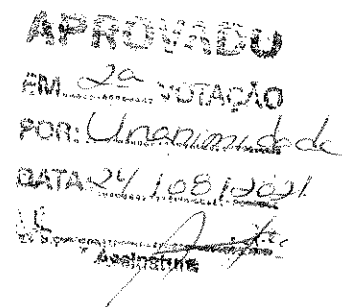 APROVADO
EM 2ª VOTAÇÃO
POR: Unanimidade
DATA 24/08/2021
Assinatura